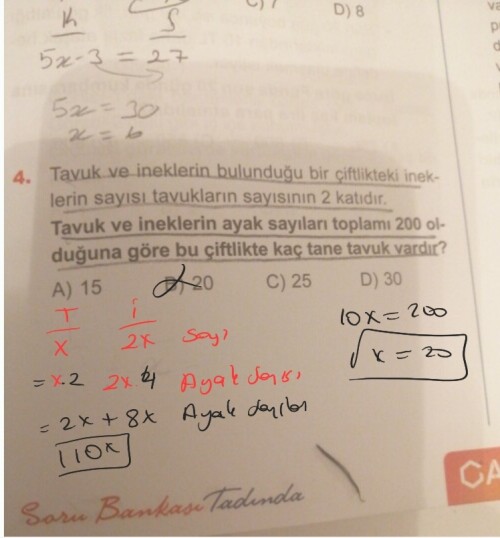 C) 7
D) 8
K Ş
5x-3 = 27
5x = 30
x = 6
4. Tavuk ve ineklerin bulunduğu bir çiftlikteki inek-
lerin sayısı tavukların sayısının 2 katıdır.
Tavuk ve ineklerin ayak sayıları toplamı 200 ol-
duğuna göre bu çiftlikte kaç tane tavuk vardır?
A) 15 B) 20 C) 25 D) 30
T İ
X 2X Sayı
= x.2 2x 4 Ayak sayısı
= 2x + 8x Ayak sayıları
110x
10x = 200
√ x = 20
Soru Bankası Tadında
CA